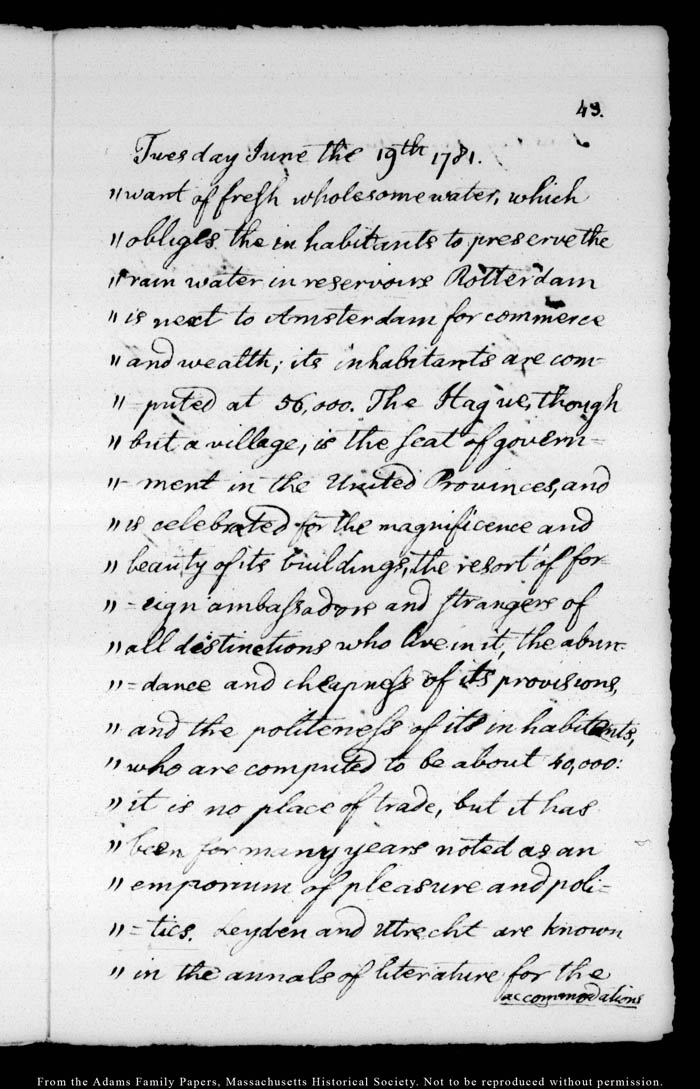 49.
Tuesday June the 19th 1781.
"want of fresh wholesome water, which
"obliges the inhabitants to preserve the
"rain water in reservoirs Rotterdam
"is next to Amsterdam for commerce
"and wealth; its inhabitants are com-
"-puted at 56,000. The Hague, though
"but a village, is the seat of govern=
"-ment in the United Provinces, and
"is celebrated for the magnificence and
"beauty of its buildings, the resort of for-
"-eign ambassadors and strangers of
"all distinctions who live in it, the abun-
"=dance and cheapness of its provisions,
"and the politeness of its inhabitants,
"who are computed to be about 40,000:
"it is no place of trade, but it has
"been for many years noted as an
"emporium of pleasure and poli=
"=tics. Leyden and Utrecht are known
"in the annals of literature for the
accommodations
From the Adams Family Papers, Massachusetts Historical Society. Not to be reproduced without permission.